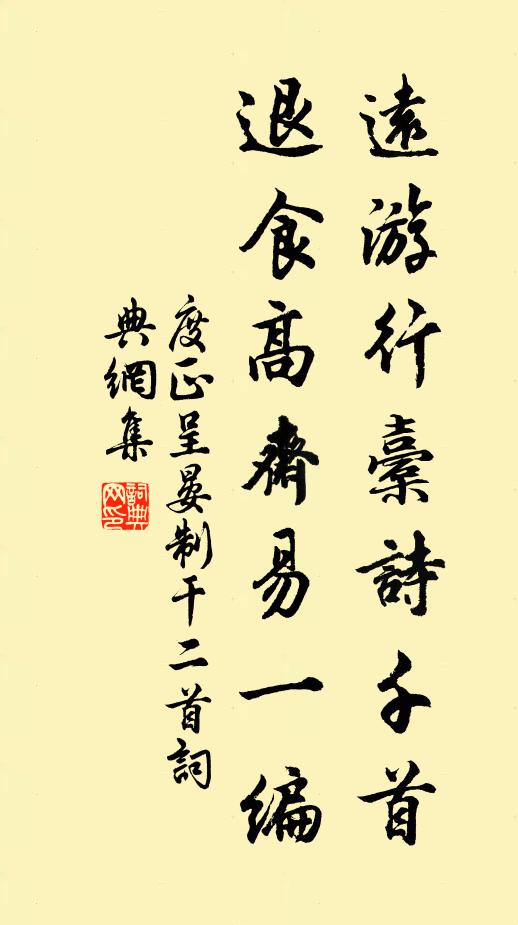 遠游行橐詩千首
退食高齋易一编
度正呈晏制干二首詞
典網集
詞典网印